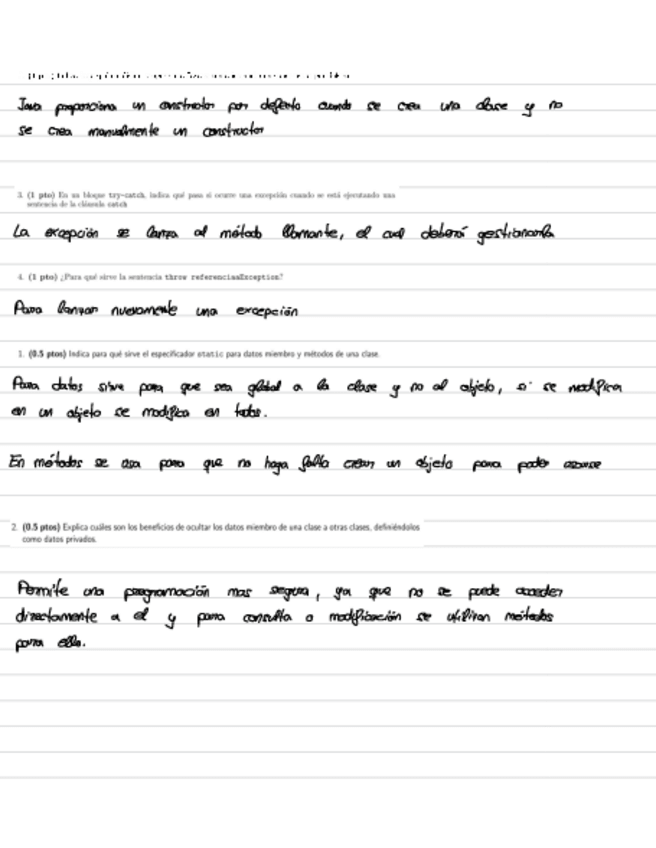 Java proporciona un constructor por defecto cuando se crea una clase y no
se crea manualmente un constructor
3. (1 pto) En un bloque try-catch, indica qué pasa si ocurre una excepción cuando se está ejecutando una
sentencia de la cláusula catch
La excepción se lanza al método llamante, el cual deberá gestionarla
4. (1 pto) ¿Para qué sirve la sentencia throw referenciaaException?
Para lanzar nuevamente una excepción
1. (0.5 ptos) Indica para qué sirve el especificador static para datos miembro y métodos de una clase.
Para datos sirve para que sea global a la clase y no al objeto, si se modifica
en un objeto se modifica en todos.
En métodos se usa para que no haga falta crear un objeto para poder usarse
2. (0.5 ptos) Explica cuáles son los beneficios de ocultar los datos miembro de una clase a otras clases, definiéndolos
como datos privados.
Permite una programación mas segura, ya que no se puede acceder
directamente a el y para consulta o modificación se utilizan métodos
para ello.